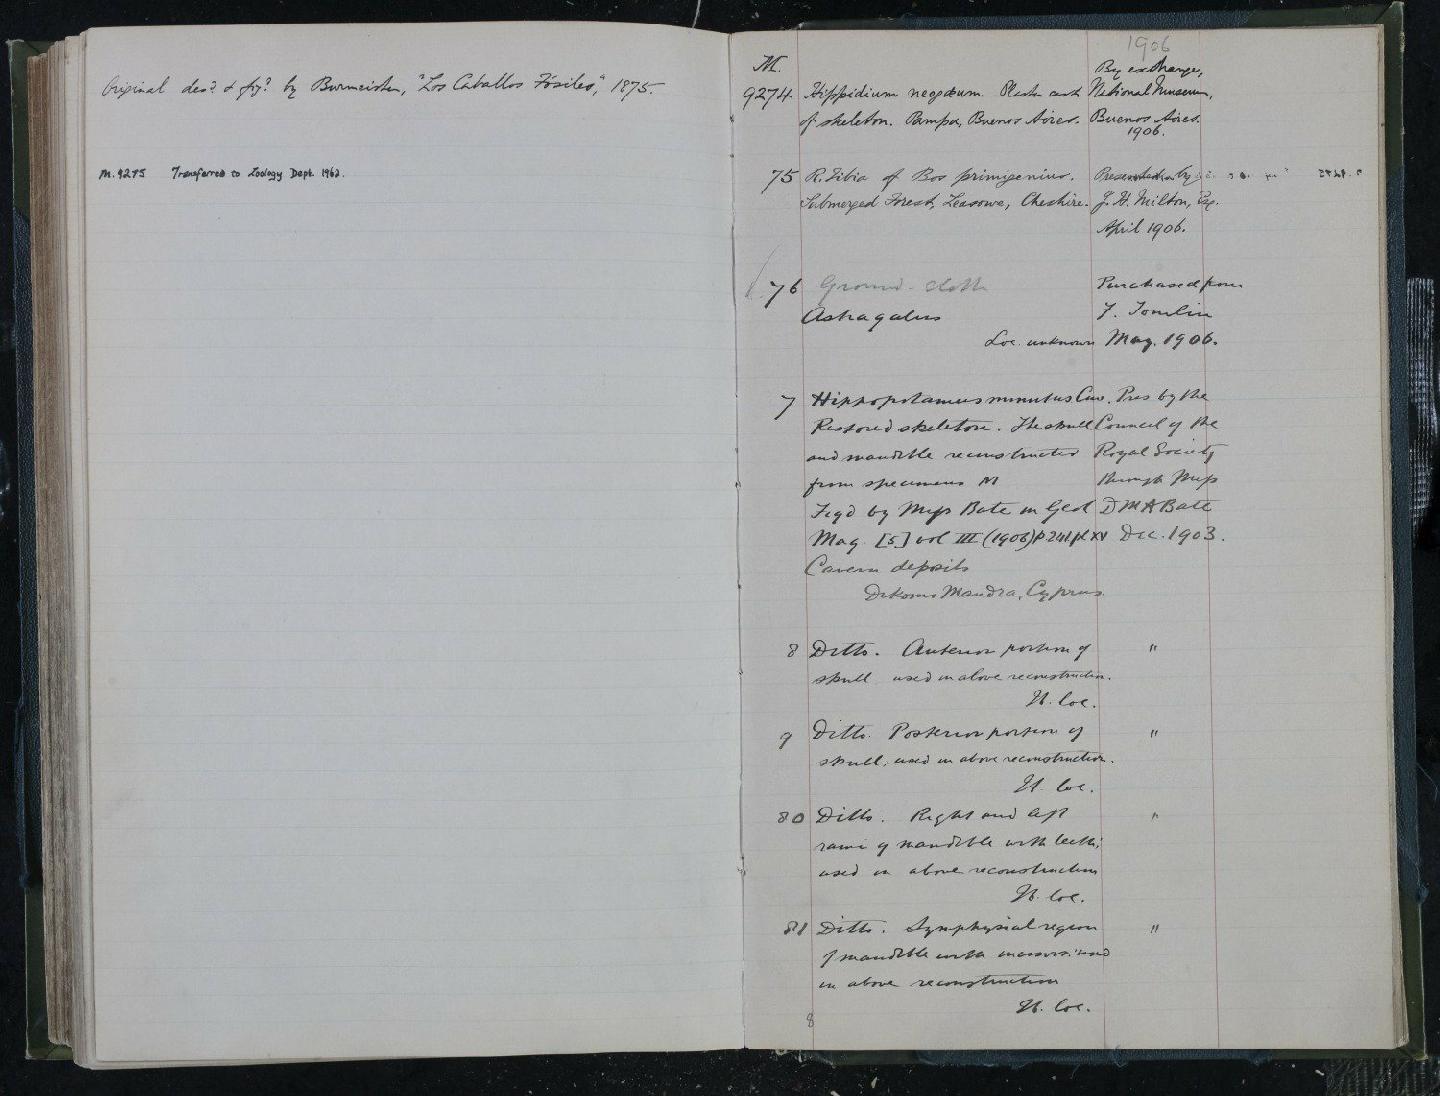 Original desc? & fig? by Burmeister, "Los Caballos Fósiles", 1875.
M.9275 Transferred to Zoology Dept. 1962.
1906
M.
9274. Hippidium neogæum. Plaster cast
of skeleton. Pampa, Buenos Aires.
By exchange,
National Museum,
Buenos Aires.
1906.
75 R. Tibia of Bos primigenius.
Submerged Forest, Leasowe, Cheshire.
Presented by
J. H. Milton, Esq.
April 1906.
76 Ground-sloth
Astragalus
Loc. unknown
Purchased from
F. Tomlin
May. 1906.
7 Hippopotamus minutus Cuv.
Restored skeleton. The skull
and mandible reconstructed
from specimens M
Figd by Miss Bate in Geol
Mag. [5] vol III (1906) p 241 pl XV
Cavern deposits
Dikomo Mandra, Cyprus
Pres by the
Council of the
Royal Society
through Miss
D M A Bate
Dec. 1903.
8 Ditto. Anterior portion of "
skull used in above reconstruction.
Id. loc.
9 Ditto. Posterior portion of "
skull, used in above reconstruction.
Id. loc.
80 Ditto. Right and left "
rami of mandible with teeth;
used in above reconstruction
Id. loc.
81 Ditto. Symphysial region "
of mandible with incisors: used
in above reconstruction
Id. loc.
8